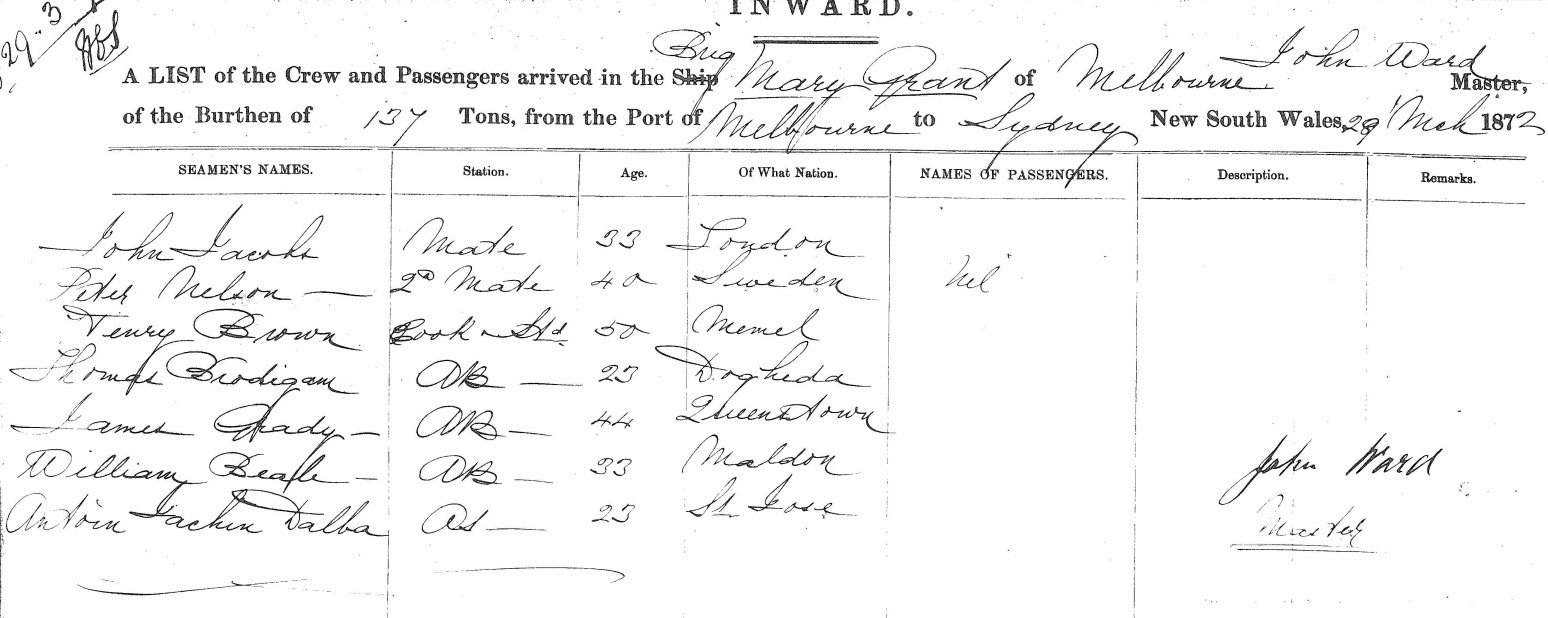 INWARD.
29.3
Brig John Ward
A LIST of the Crew and Passengers arrived in the Ship Mary Grant of Melbourne Master,
of the Burthen of 137 Tons, from the Port of Melbourne to Sydney New South Wales, 29 Mch 1872
SEAMEN'S NAMES. Station. Age. Of What Nation. NAMES OF PASSENGERS. Description. Remarks.
John Jacobs Mate 33 London
Peter Nelson — 2D Mate 40 Sweden Nil
Henry Brown Cook & Std. 50 Memel
Thomas Brodigam AB — 23 Dogheda
James Grady — AB — 44 Queenstown
William Beale — AB — 33 Maldon
Antoin Dalba — 23 St Jose
John Ward
Master